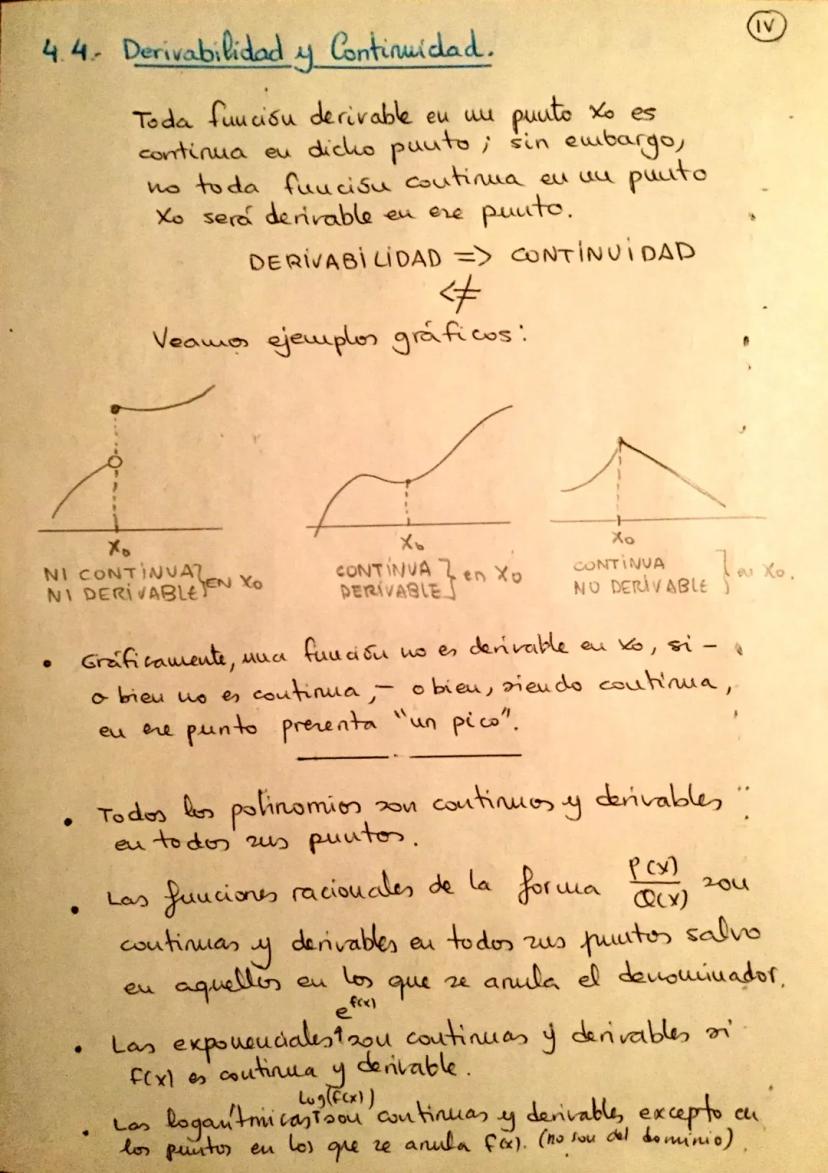 IV
4.4.- Derivabilidad y Continuidad.
Toda función derivable en un punto x₀ es
continua en dicho punto; sin embargo,
no toda función continua en un punto
x₀ será derivable en ese punto.
DERIVABILIDAD => CONTINUIDAD
<≠
Veamos ejemplos gráficos:
x₀ x₀ x₀
NI CONTINUA
NI DERIVABLE } EN x₀
CONTINUA
DERIVABLE } en x₀
CONTINUA
NO DERIVABLE } en x₀.
• Gráficamente, una función no es derivable en x₀, si -
o bien no es continua, - o bien, siendo continua,
en ese punto presenta "un pico".
• Todos los polinomios son continuos y derivables
en todos sus puntos.
• Las funciones racionales de la forma P(x)/Q(x) son
continuas y derivables en todos sus puntos salvo
en aquellos en los que se anula el denominador.
• Las exponenciales ↑ e^f(x) son continuas y derivables si
f(x) es continua y derivable.
• Las logarítmicas ↑ Log(f(x)) son continuas y derivables excepto en
los puntos en los que se anula f(x). (no son del dominio)